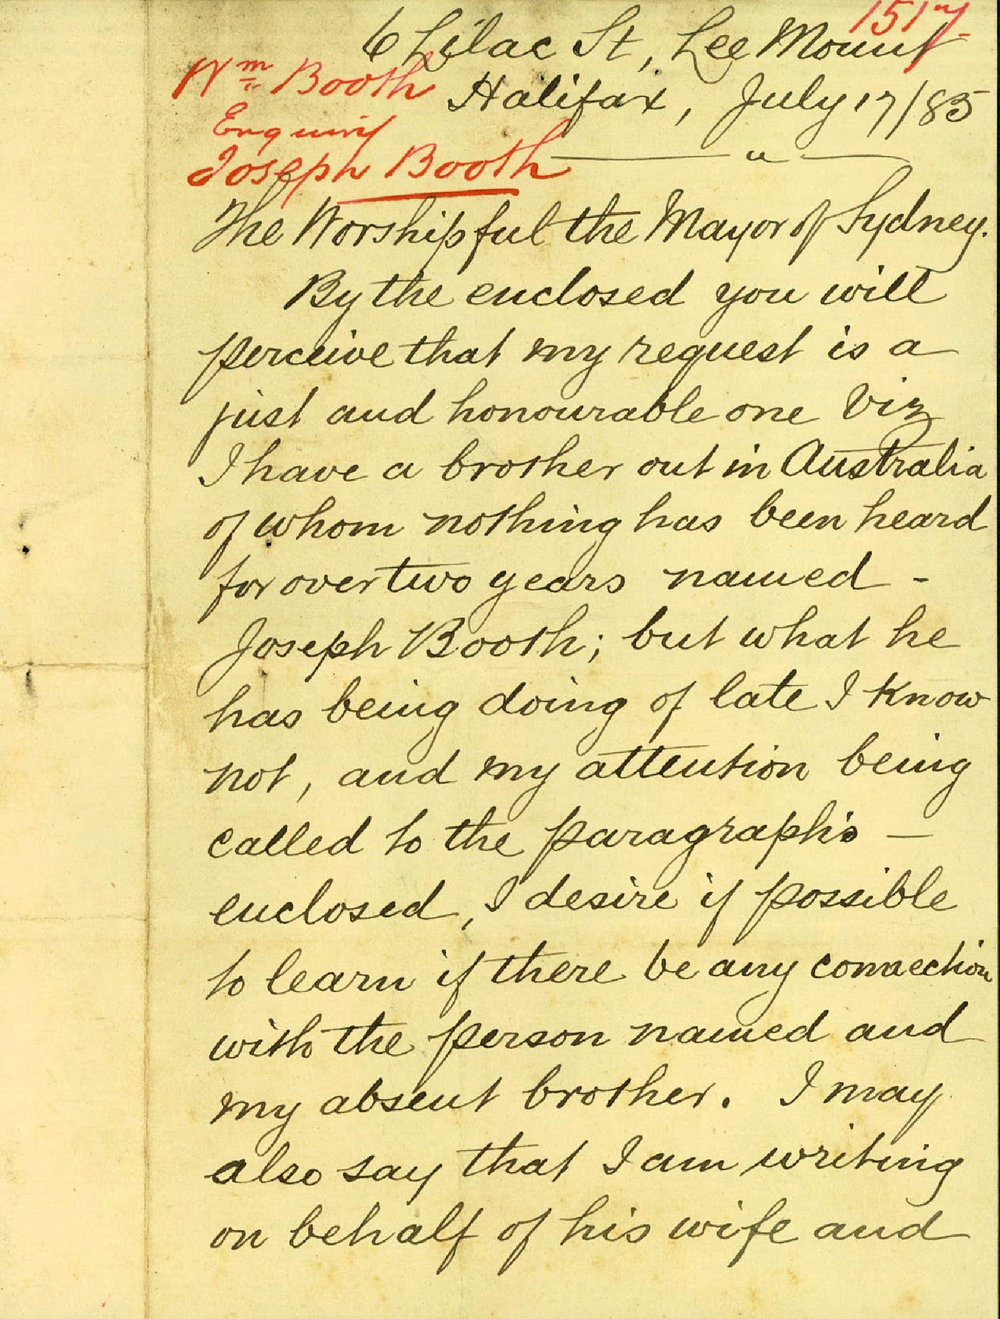 1517
6 Lilac St, Lee Mount
Wm Booth
Halifax, July 17/85
Enquiry
Joseph Booth
The Worshipful the Mayor of Sydney.
By the enclosed you will
perceive that my request is a
just and honourable one Viz
I have a brother out in Australia
of whom nothing has been heard
for over two years named -
Joseph Booth; but what he
has being doing of late I know
not, and my attention being
called to the paragraphs —
enclosed, I desire if possible
to learn if there be any connection
with the person named and
my absent brother. I may
also say that I am writing
on behalf of his wife and